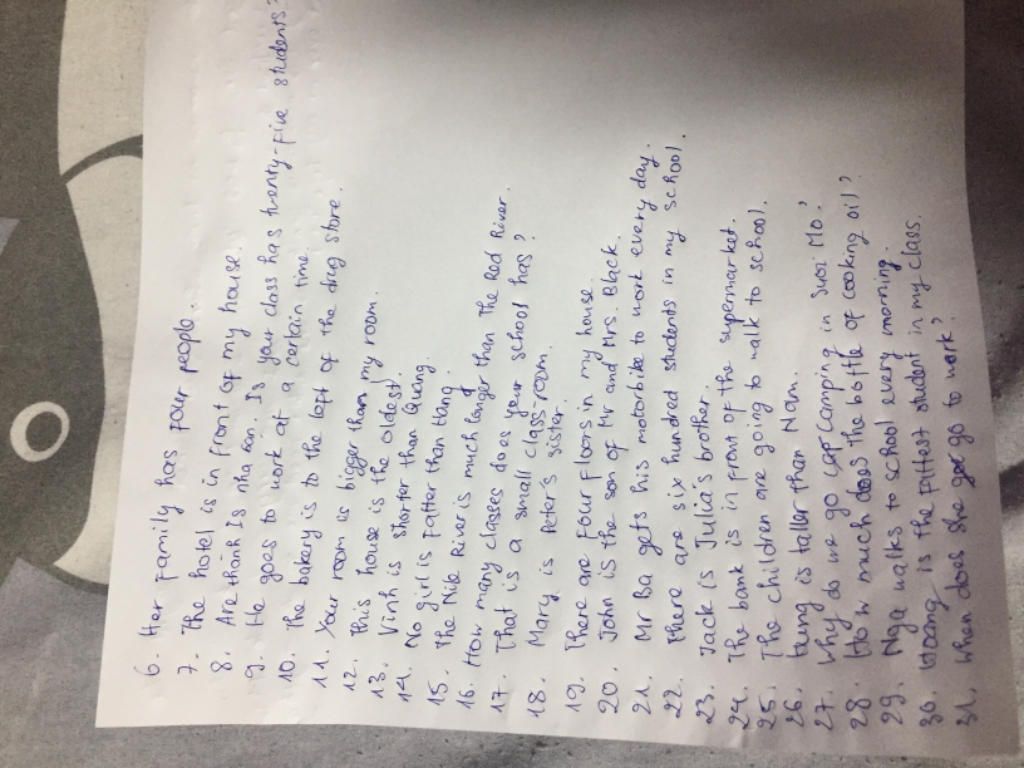 6. Her family has four people.
7. The hotel is in front of my house.
8. Are thành Is nha ban. Is your class has twenty-five students?
9. He goes to work at a certain time.
10. The bakery is to the left of the drug store.
11. Your room is bigger than my room.
12. This house is the oldest.
13. Vinh is shorter than Quang
14. No girl is fatter than Hang.
15. The Nile River is much longer than the Red River
16. How many classes does your school has?
17. That is a small classroom.
18. Mary is Peter's sister.
19. There are four floors in my house.
20. John is the son of Mr and Mrs. Black.
21. Mr Ba gets his motorbike to work every day.
22. There are six hundred students in my school.
23. Jack is Julia's brother.
24. The bank is in front of the supermarket.
25. The children are going to walk to school.
26. is taller than Nam.
27. Why do we go camping in Suoi Mo?
28. How much does the bottle of cooking oil?
29. Nga walks to school every morning.
30. Hoang is the fittest student in my class.
31. When does she go to work?